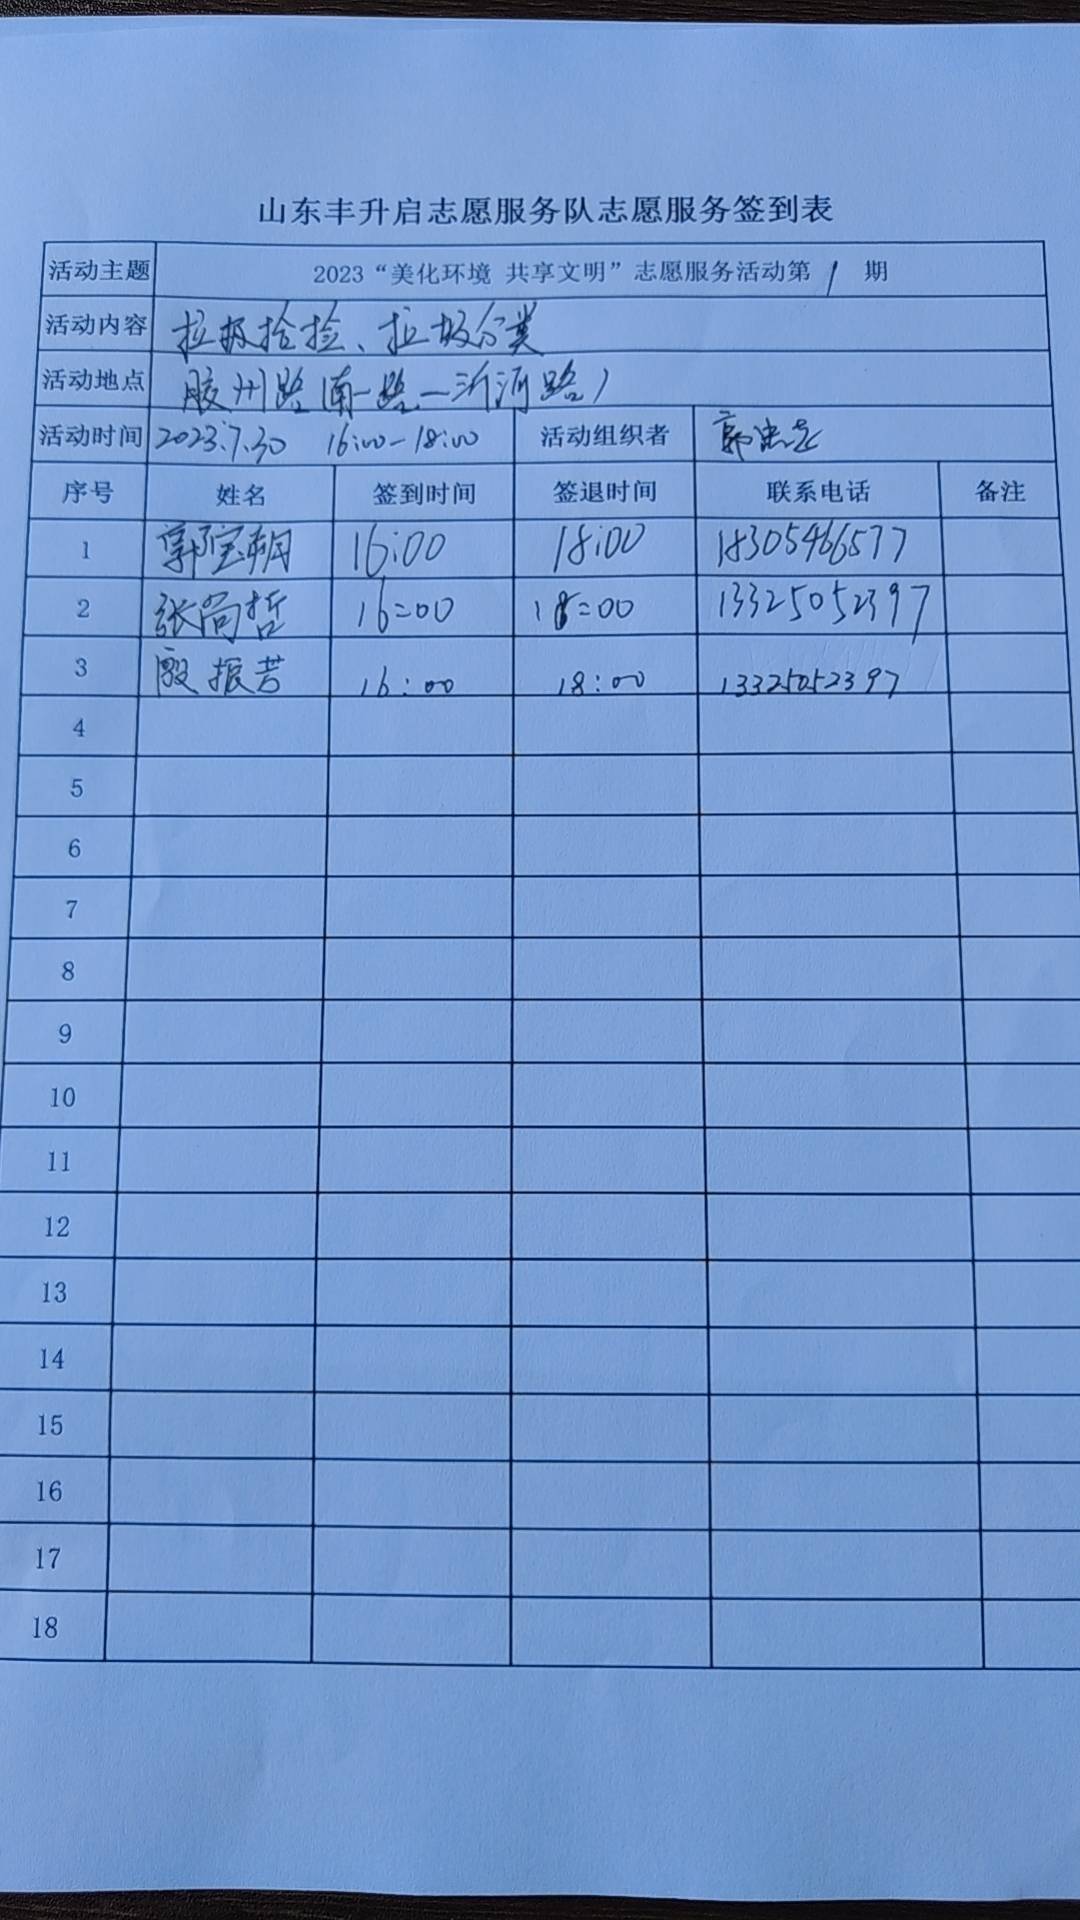 山东丰升启志愿服务队志愿服务签到表
活动主题 2023“美化环境 共享文明”志愿服务活动第1期
活动内容 垃圾拾捡、垃圾分类
活动地点 胶州路(南一路—沂河路)
活动时间 2023.7.30 16:00-18:00 活动组织者 郭
序号 姓名 签到时间 签退时间 联系电话 备注
1 郭宝朝 16:00 18:00 18305466577
2 张尚哲 16:00 18:00 13325052397
3 殷振芳 16:00 18:00 13325052397
4
5
6
7
8
9
10
11
12
13
14
15
16
17
18